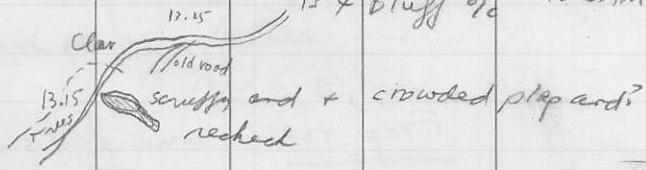 13.15
Bluff
Clar
old road
13.15
Trees
scruffy and + crowded plap and?
recheck